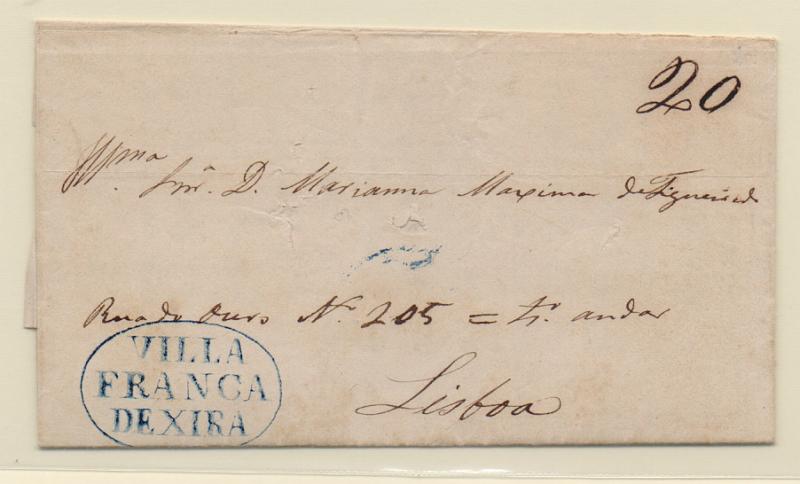 20
Illma Snra. D. Marianna Maxima de Figueiredo
Rua do Ouro Nº 205 = andar
Lisboa
VILLA
FRANCA
DE XIRA